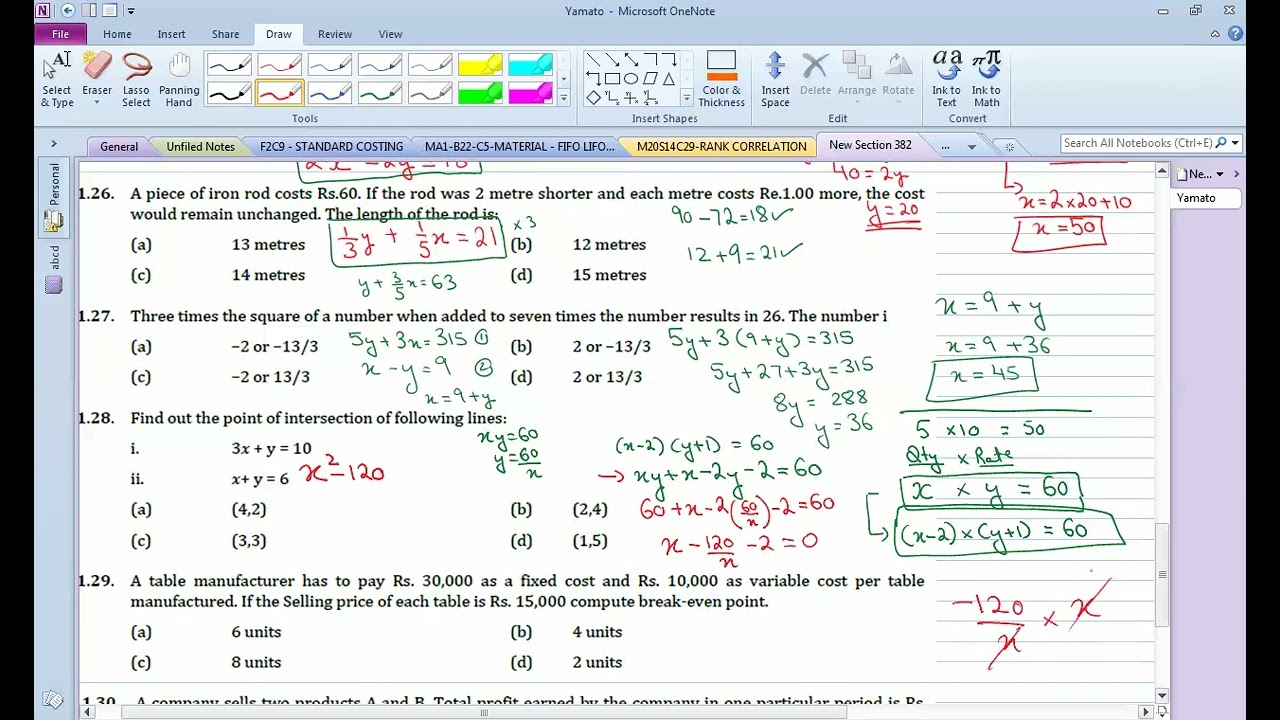 Yamato - Microsoft OneNote
File Home Insert Share Draw Review View
Select & Type
Eraser
Lasso Select
Panning Hand
Color & Thickness
Insert Space
Delete
Arrange
Rotate
Ink to Text
Ink to Math
Tools
Insert Shapes
Edit
Convert
General
Unfiled Notes
F2C9 - STANDARD COSTING
MA1-B22-C5-MATERIAL - FIFO LIFO...
M20S14C29-RANK CORRELATION
New Section 382
...
Search All Notebooks (Ctrl+E)
Personal
abcd
Ne...
Yamato
40 = 2y
y = 20
x = 2 x 20 + 10
x = 50
1.26. A piece of iron rod costs Rs.60. If the rod was 2 metre shorter and each metre costs Re.1.00 more, the cost
would remain unchanged. The length of the rod is:
(a) 13 metres
(b) 12 metres
(c) 14 metres
(d) 15 metres
1/3 y + 1/5 x = 21
x 3
y + 3/5 x = 63
90 - 72 = 18 ✓
12 + 9 = 21 ✓
1.27. Three times the square of a number when added to seven times the number results in 26. The number i
(a) -2 or -13/3
(b) 2 or -13/3
(c) -2 or 13/3
(d) 2 or 13/3
5y + 3x = 315 ①
x - y = 9 ②
x = 9 + y
5y + 3 (9 + y) = 315
5y + 27 + 3y = 315
8y = 288
y = 36
x = 9 + y
x = 9 + 36
x = 45
1.28. Find out the point of intersection of following lines:
i. 3x + y = 10
ii. x+ y = 6
(a) (4,2)
(b) (2,4)
(c) (3,3)
(d) (1,5)
x² - 120
xy = 60
y = 60/x
(x-2) (y+1) = 60
→ xy + x - 2y - 2 = 60
60 + x - 2 (60/x) - 2 = 60
x - 120/x - 2 = 0
5 x 10 = 50
Qty x Rate
x x y = 60
(x-2) x (y+1) = 60
-120/x x x
1.29. A table manufacturer has to pay Rs. 30,000 as a fixed cost and Rs. 10,000 as variable cost per table
manufactured. If the Selling price of each table is Rs. 15,000 compute break-even point.
(a) 6 units
(b) 4 units
(c) 8 units
(d) 2 units
1.30. A company sells two products A and B. Total profit earned by the company in one particular period is Rs